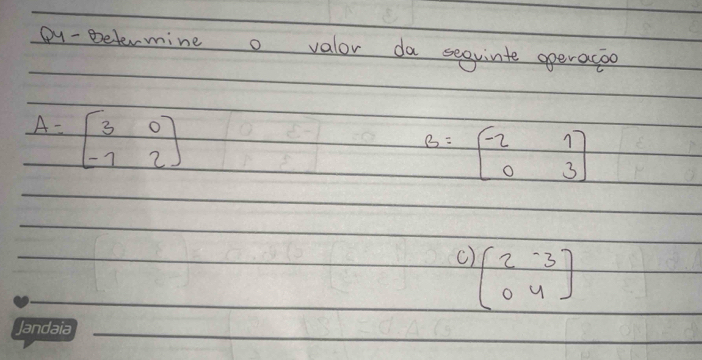 Q4 - Determine o valor da seguinte operação
A = [3 0
-1 2]
B = [-2 1
0 3]
C) [2 -3
0 4]
Jandaia